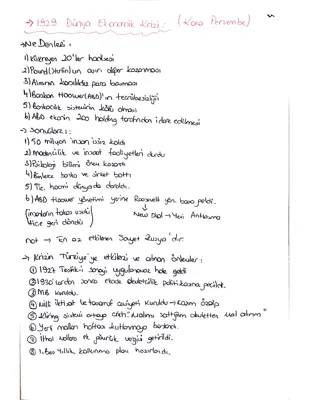 → 1929 Dünya Ekonomik Krizi: (Kara Perşembe)
→ Nedenleri:
1) Kükreyen 20'ler hadisesi
2) Pound (Sterlin)'un aşırı değer kazanması
3) Alınan karşılıksız para basması
4) Başkan Hoower(ABD)'ın tecrübesizliği
5) Bankacılık sisteminin kötü olması
6) ABD ekonin 200 holding tarafından idare edilmesi
→ Sonuçları:
1) 50 milyon insan işsiz kaldı
2) Madencilik ve inşaat faaliyetleri durdu
3) Psikoloji bilimi önem kazandı
4) Binlerce banka ve şirket battı
5) Tic. hacmi dünyada daraldı.
6) ABD Hoower yönetimi yerine Roosvelt yön. başa geldi.
New Deal → Yeni Antlaşma
Hiçe geri döndü
not → En az etkilenen Sovyet Rusya'dır.
→ Krizin Türkiye'ye etkileri ve alınan önlemler:
① 1927 Teşfik-i sanayi uygulanamaz hale geldi
② 1930'lardan sonra ekode devletçilik politikasına geçildi.
③ MB kuruldu.
④ Milli iktisat ve tasarruf cemiyeti kuruldu → Kazım Özalp
⑤ Kliring sistemi ortaya çıktı: "Malımı sattığım devletten mal alırım"
⑥ Yerli malları haftası kutlanmaya başlandı.
⑦ İthal kotası ek gümrük vergisi getirildi.
⑧ 1. Beş Yıllık kalkınma planı hazırlandı.